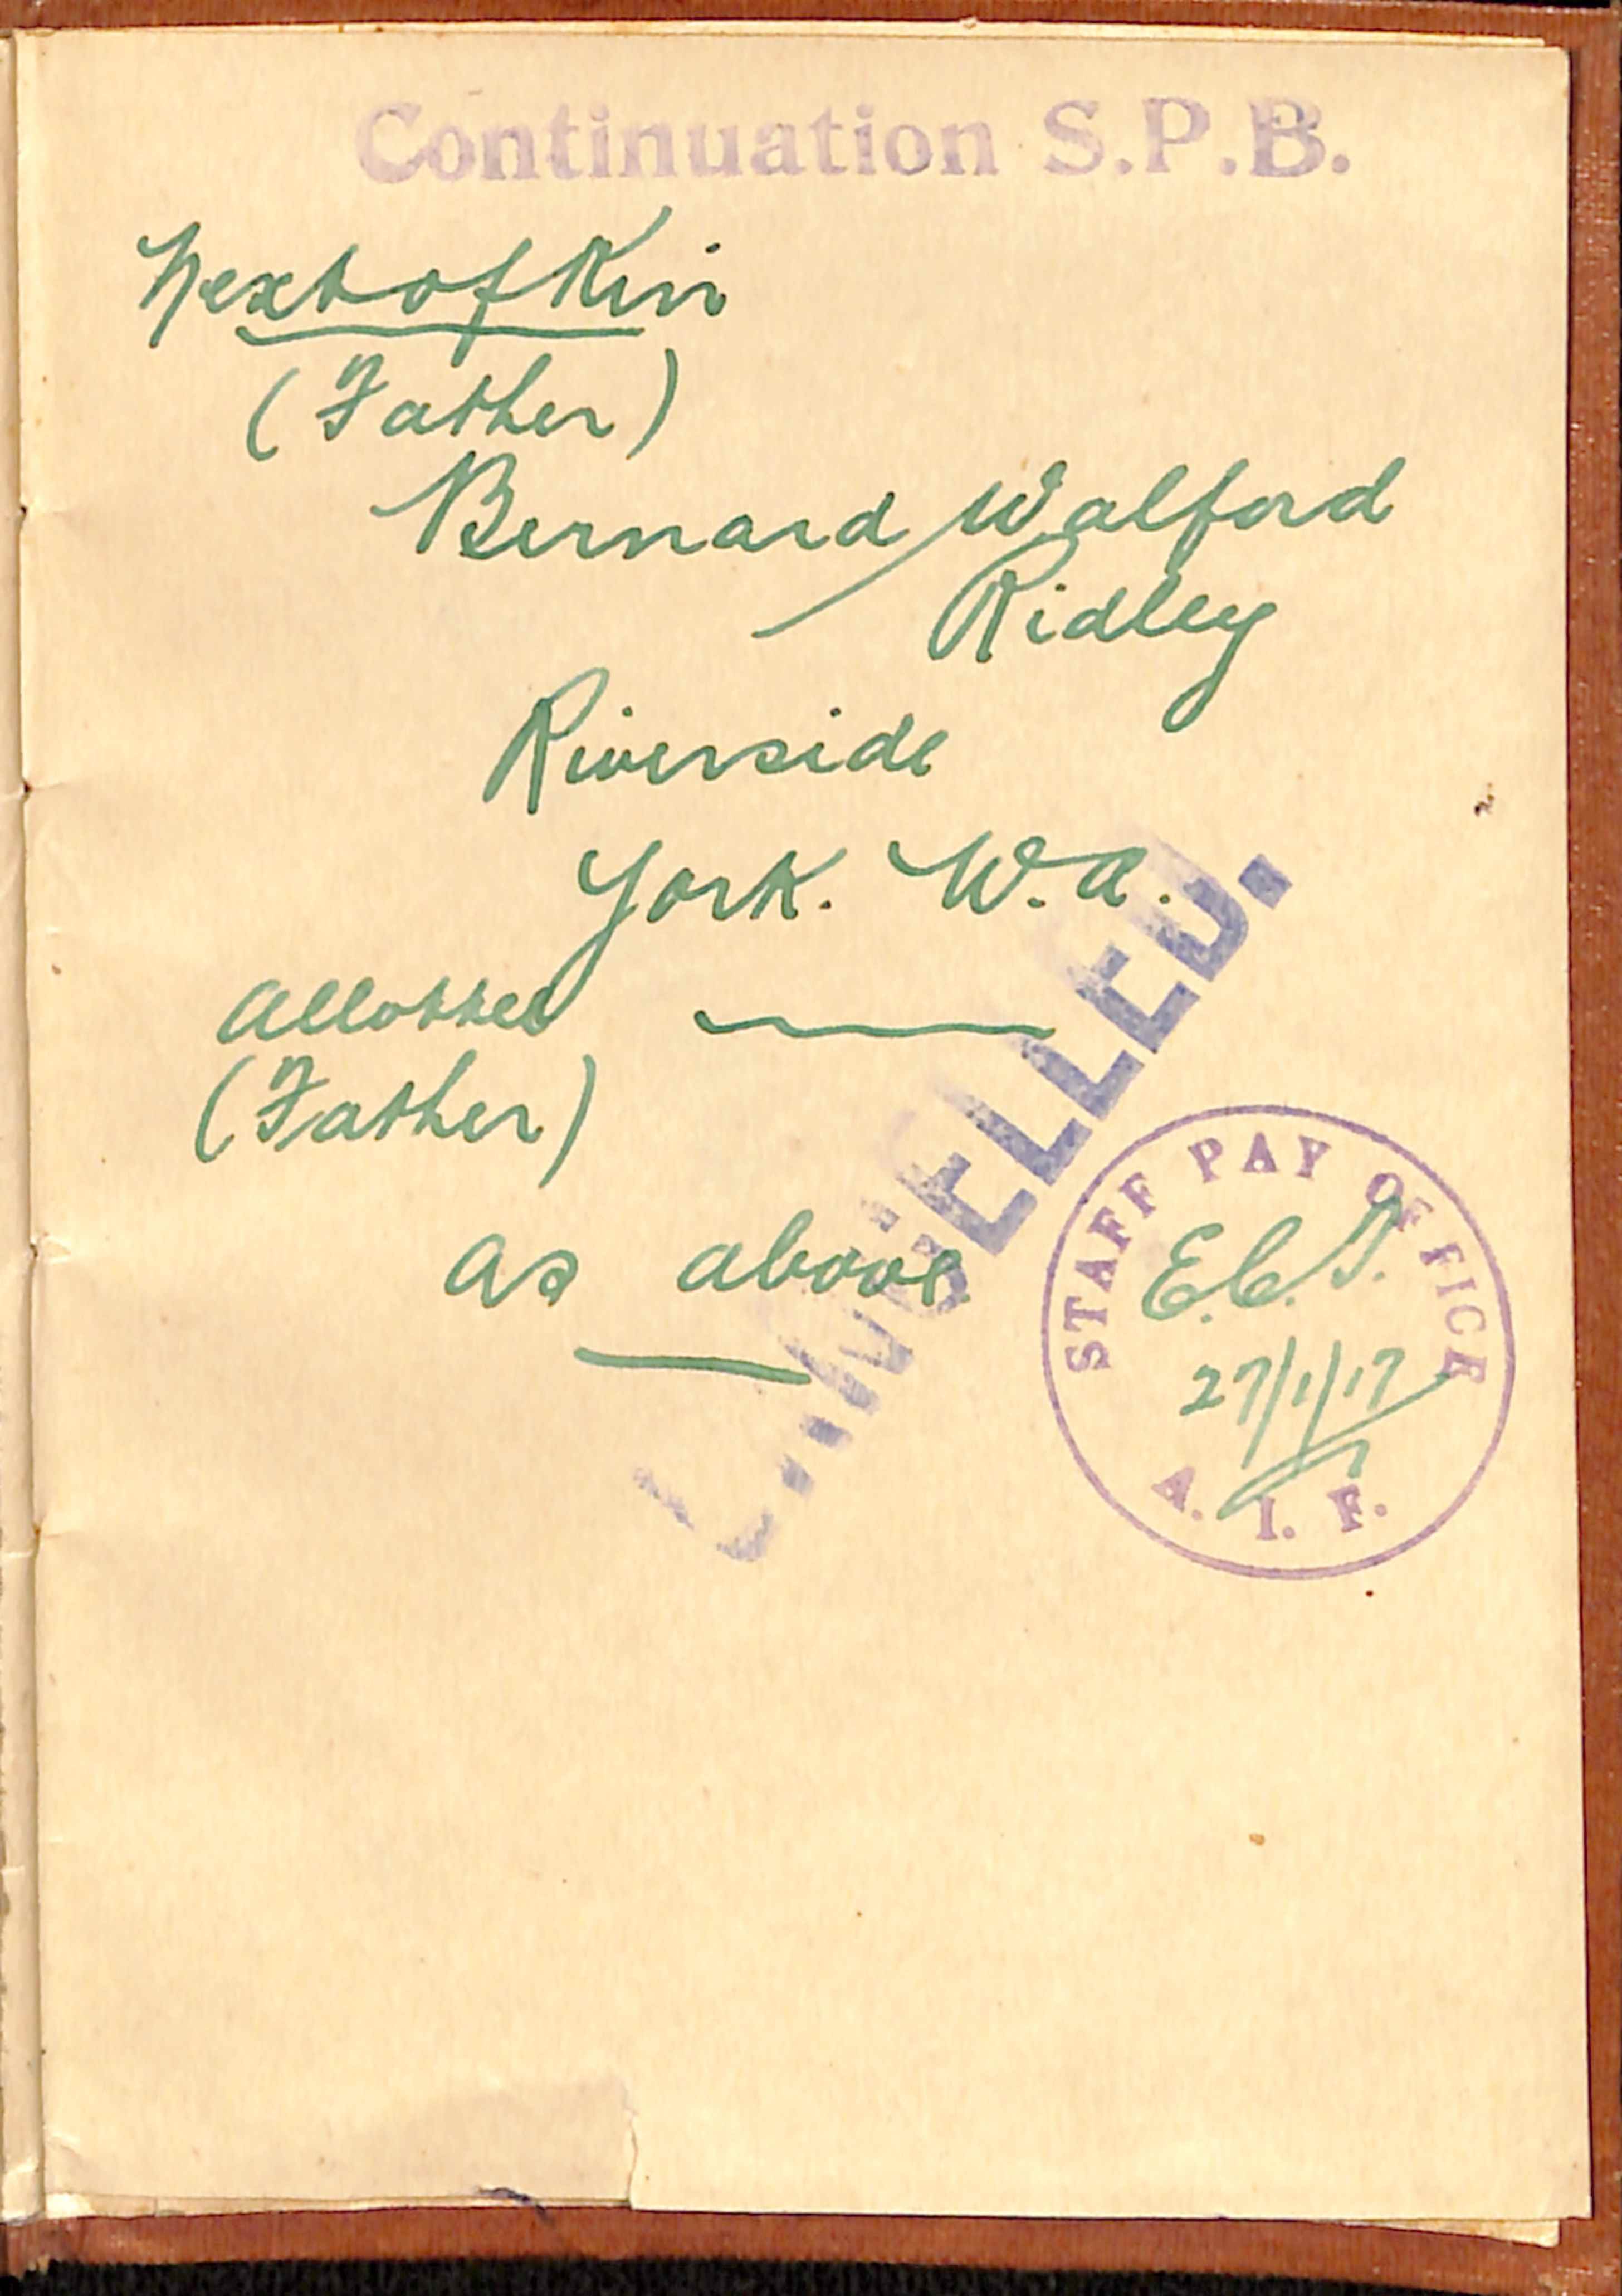 Continuation S.P.B.
Next of Kin
(Father)
Bernard Walford
Ridley
Riverside
York. W.A.
Allottee
(Father)
as above.
CANCELLED.
STAFF PAY OFFICE
E.C.T.
27/1/17
A. I. F.